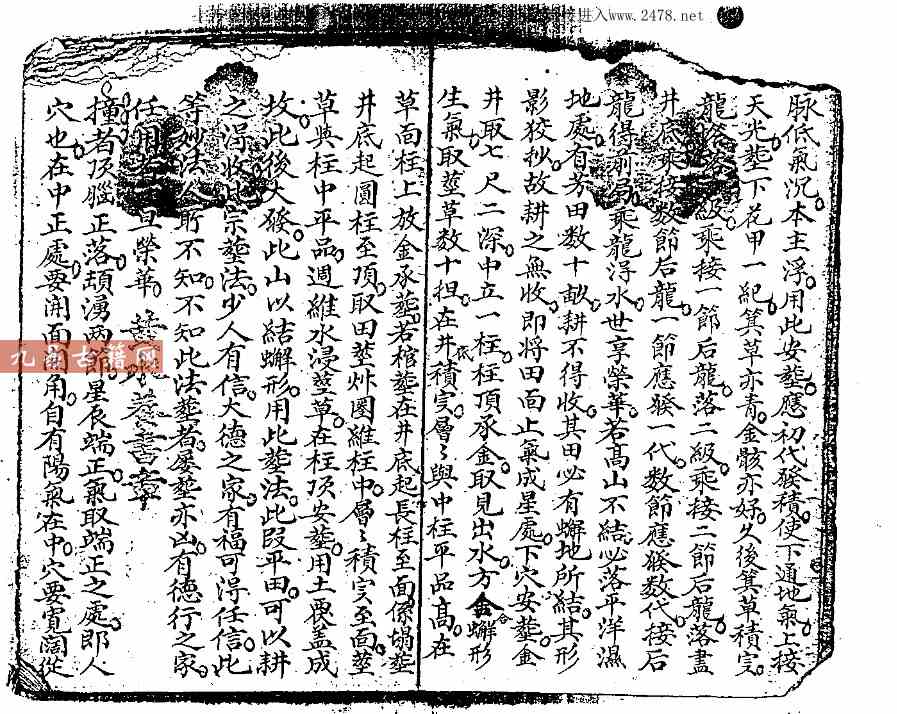 进入www.2478.net
脉低氣沉本主浮用此安塟應初代發積使下通地氣上接
天光塟下花甲一紀箕草亦青金骸亦好久後箕草積实
龍落 級乘接一節后龍落二級乘接二節后龍落盡
井底乘接数節后龍一節應發一代数節應發数代接后
龍得前局乘龍浔水世享榮華若高山不結必落平洋濕
地處有芳田数十畝耕不得收其田必有蠏地所結其形
影狡秒故耕之無收即将田面止氣成星處下穴安塟金
井取七尺二深中立一柱柱頂承金取見出水方合金蠏形
生氣取塟草数十担在井底積实層〻與中柱平品高在
草面柱上放金承塟若棺塟在井底起長柱至面係塌塟
井底起圓柱至頂取田塟 圂維柱中層〻積实至面塟
草與柱中平品週維水浸塟草在柱頂安塟用土衆盖成
坟此後大發此山以結蠏形用此塟法此段平田可以耕
之浔收此宗塟法少人有信大德之家有福可得任信此
等妙法人所不知不知此法塟者屡塟亦凶有德行之家
任用 亘榮華 塟 章
撞者頂腦正落頡湧两館星辰端正氣取端正之處即人
穴也在中正處要開面開角自有陽氣在中穴要寬闊從
九 古籍网